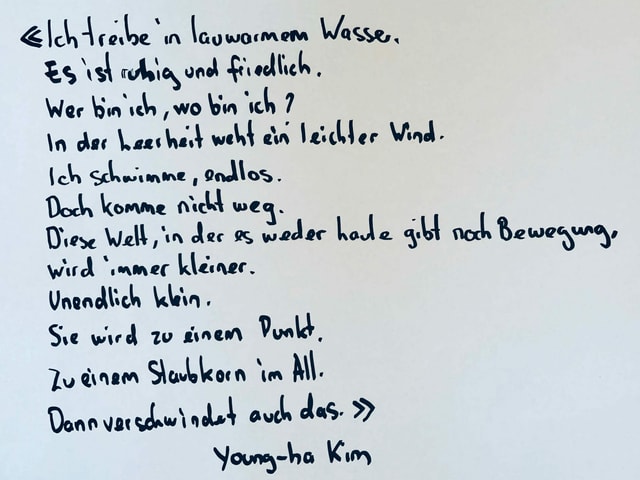 «Ich treibe in lauwarmem Wasser.
Es ist ruhig und friedlich.
Wer bin ich, wo bin ich?
In der Leerheit weht ein leichter Wind.
Ich schwimme, endlos.
Doch komme nicht weg.
Diese Welt, in der es weder haute gibt noch Bewegung,
wird immer kleiner.
Unendlich klein.
Sie wird zu einem Punkt.
Zu einem Staubkorn im All.
Dann verschwindet auch das.»
Young-ha Kim